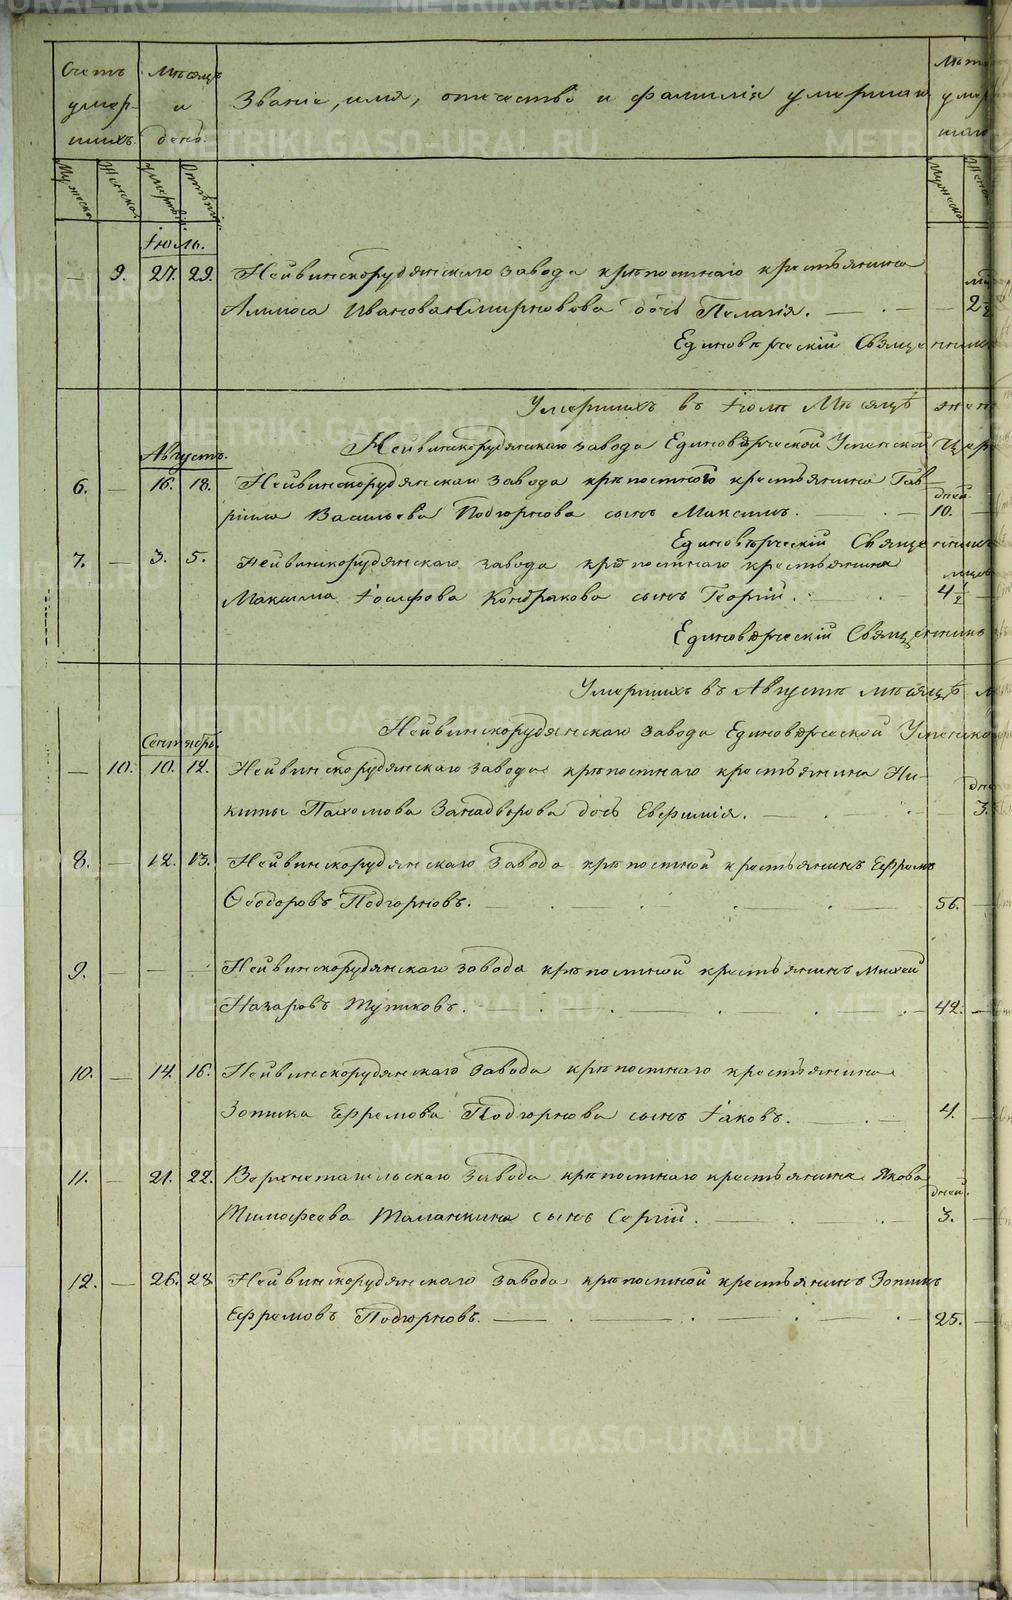 Счетъ умер- шихъ.
Мѣсяцъ и день.
Званіе, имя, отчество и фамилія умершаго
Мужеска Женска
Іюль.
— 9. 27. 29. Нейвинскорудянскаго завода крѣпостнаго крестьянина
Иванова Смирновова дочь Пелагія. 2 1/2
Единовѣрческій Священникъ
Умершихъ въ Іюлѣ Мѣсяцѣ
Нейвинскорудянскаго завода Единовѣрческой Успенской Цер
Августъ.
6. — 16. 18. Нейвинскорудянскаго завода крѣпостного крестьянина Гав-
дней
рила Васильева Подгорнова сынъ Максимъ. 10.
Единовѣрческій Священникъ
7. — 3. 5. Нейвинскорудянскаго завода крѣпостнаго крестьянина
Максима Іосифова Кондракова сынъ Георгій. 4 1/2
Единовѣрческій Священникъ
Умершихъ въ Августѣ мѣсяцѣ
Нейвинскорудянскаго завода Единовѣрческой Успенско
Сентябрь.
— 10. 10. 12. Нейвинскорудянскаго завода крѣпостнаго крестьянина Ни-
киты Пахомова Занадворова дочь Евфимія. 3.
8. — 12. 13. Нейвинскорудянскаго завода крѣпостной крестьянинъ Ефремъ
Ѳеодоровъ Подгорновъ. 56.
9. — — Нейвинскорудянскаго завода крѣпостной крестьянинъ Михей
Назаровъ Тупиковъ. 42.
10. — 14. 16. Нейвинскорудянскаго завода крѣпостнаго крестьянина
Зотика Ефремова Подгорнова сынъ Іаковъ. 4.
11. — 21. 22. Верхнетагильскаго завода крѣпостнаго крестьянина Якова
дней.
Тимофеева Таланкина сынъ Сергій. 3.
12. — 26. 28. Нейвинскорудянскаго завода крѣпостной крестьянинъ Зотикъ
Ефремовъ Подгорновъ. 25.
METRIKI.GASO-URAL.RU